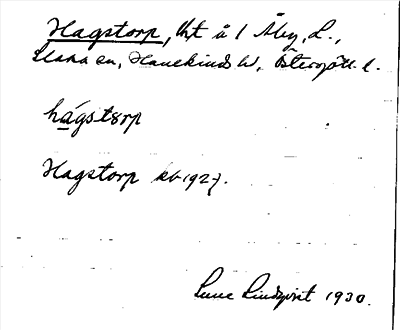 Hagstorp, tht å 1 Åby, L.,
Slaka sn, Hanekinds hd, Östergötl. l.
hágstɐrp
Hagstorp kb 1927.
Sune Lindqvist 1930.